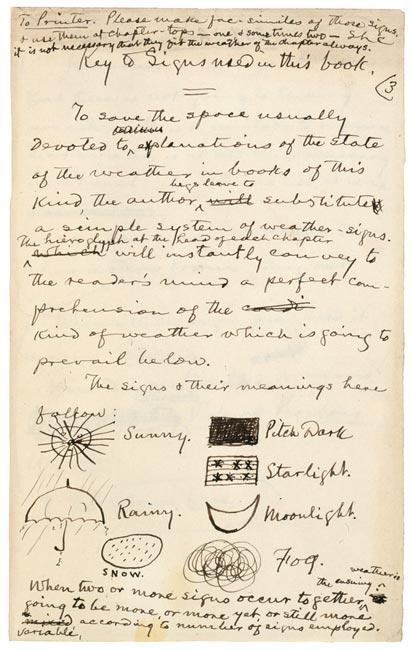 To Printer. Please make fac-similes of those signs,
& use them at chapter-tops — one & sometimes two — S L C
it is not necessary that they fit the weather of the chapter always.
Key to Signs used in this book.
3
To save the space usually
tedious
Devoted to explanations of the state
of the weather in books of this
begs leave to
Kind, the author, will substitute
a simple system of weather-signs.
The hieroglyph at the head of each chapter
which will instantly convey to
the reader's mind a perfect com-
prehension of the condi
Kind of weather which is going to
prevail below.
The signs & their meanings here
follow:
Sunny.
Pitch Dark
Starlight.
Rainy.
Moonlight.
SNOW.
Fog.
weather is
the ensuing
When two or more signs occur together,
going to be more, or more yet or still more
mixed according to number of signs employed.
variable,